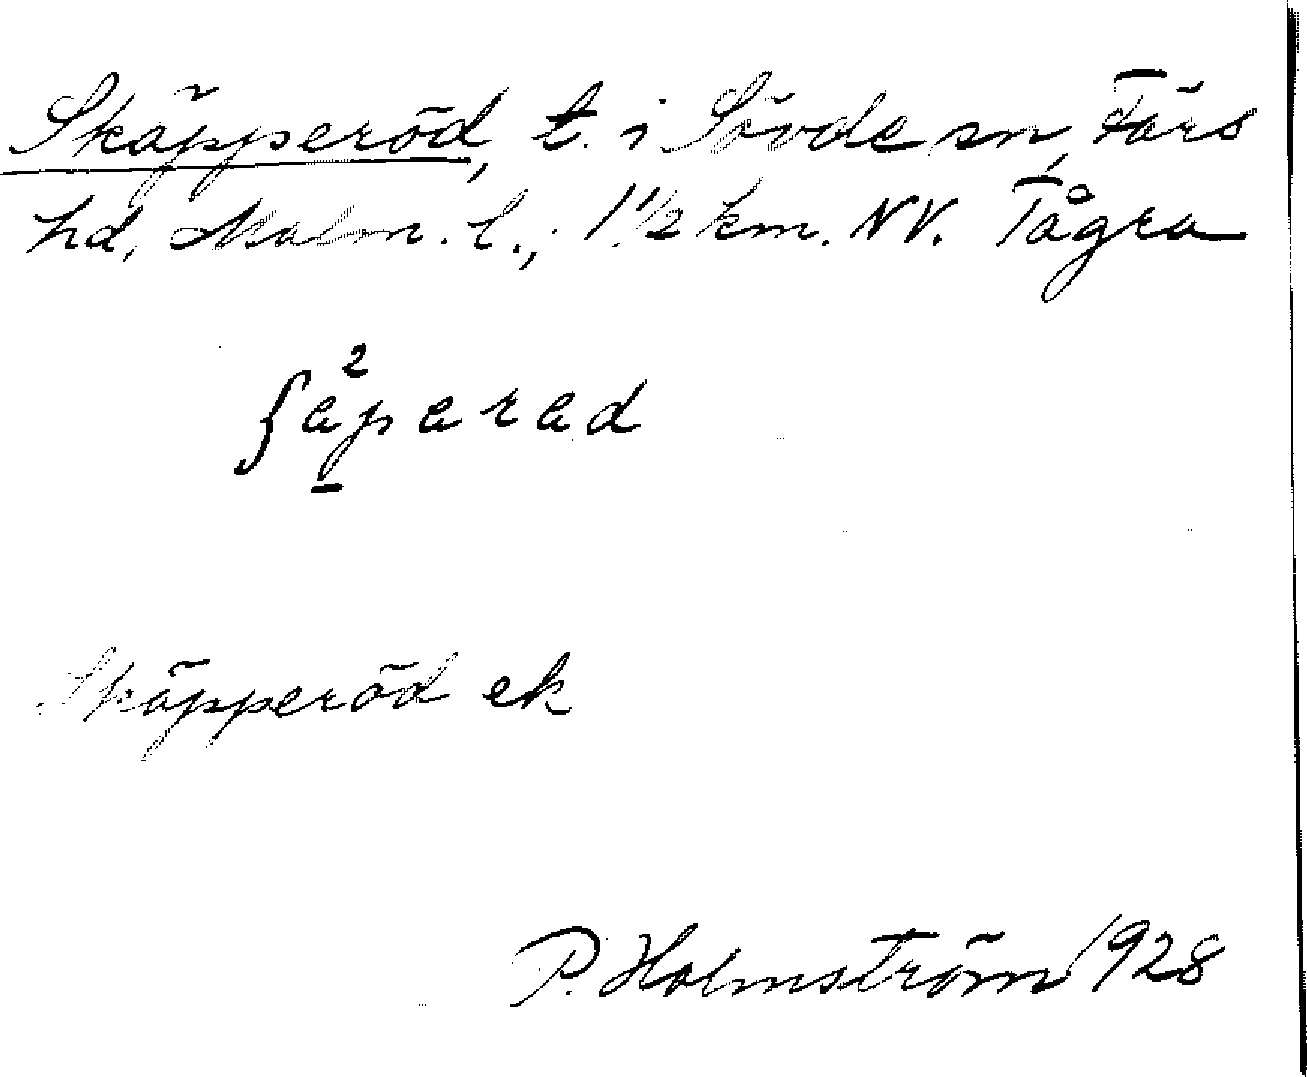 Skäpperöd, t. i Sövde sn, Färs
hd, Malm. l.; 1 1/2 km. NV. Tågra
ʃäparad
Skäpperöd ek
P. Holmström 1928